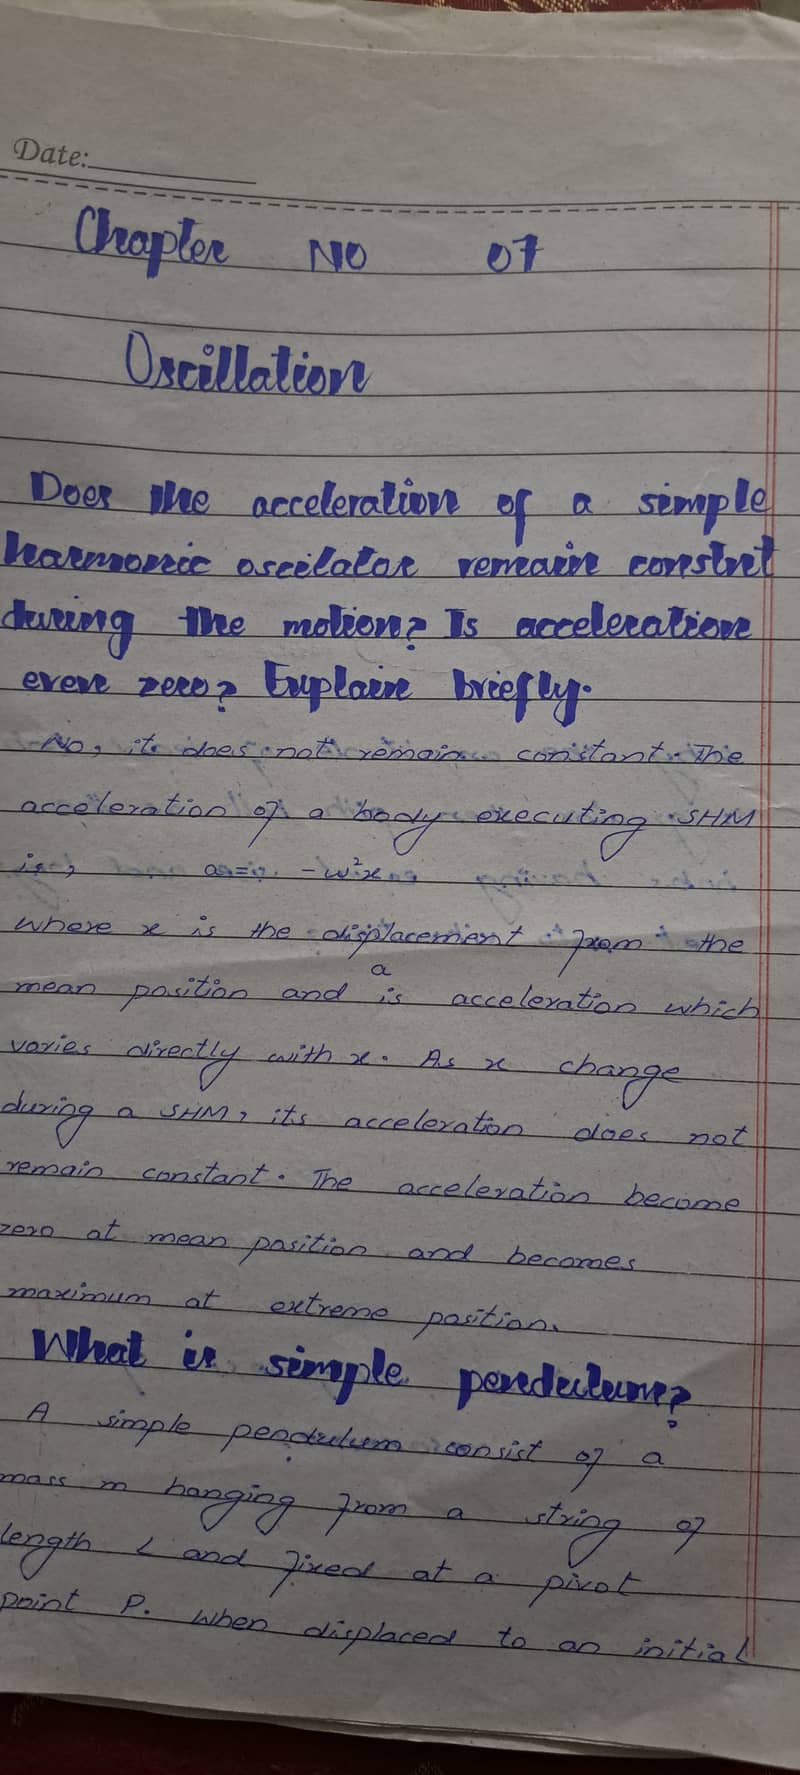 Date:
Chapter NO 07
Oscillation
Does the acceleration of a simple
harmonic oscilator remain constnt
during the motion? Is acceleration
ever zero? Explain briefly.
No, it does not remain constant. The
acceleration of a body executing SHM
is, a = -ω²x
where x is the displacement from the
mean position and a is acceleration which
varies directly with x. As x change
during a SHM, its acceleration does not
remain constant. The acceleration become
zero at mean position and becomes
maximum at extreme position.
What is simple pendulum?
A simple pendulum consist of a
mass m hanging from a string of
length L and fixed at a pivot
point P. When displaced to an initial